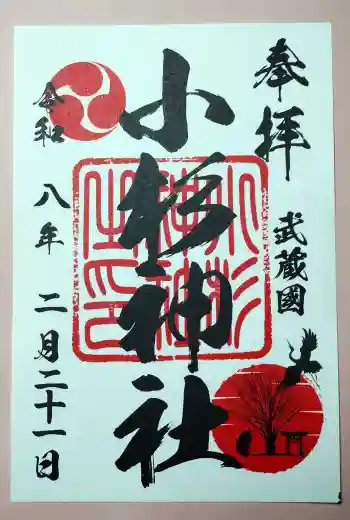 奉拝
武蔵國
小杉神社
小杉神社之印
令和八年二月二十一日